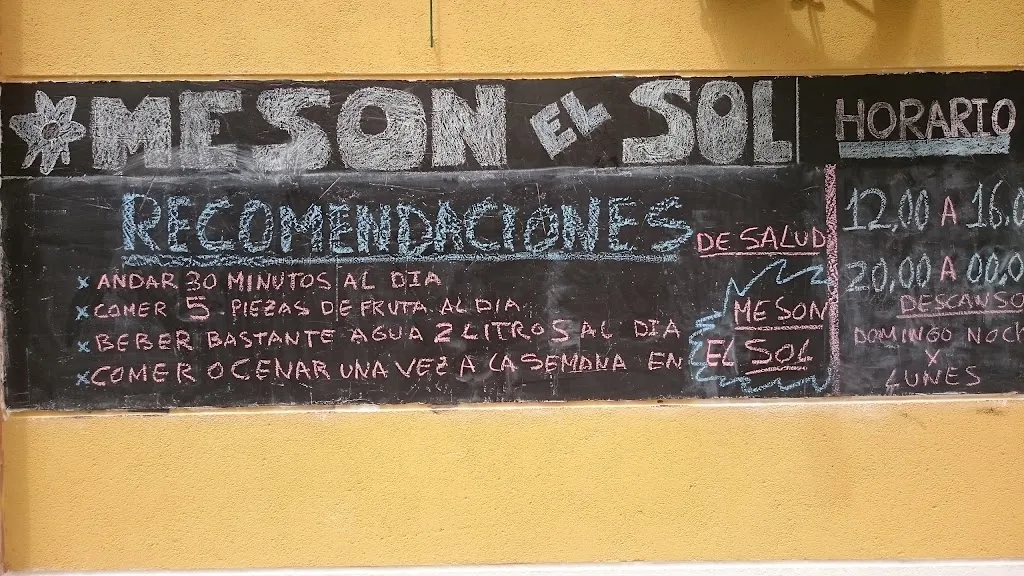 MESON EL SOL
RECOMENDACIONES DE SALUD
x ANDAR 30 MINUTOS AL DIA
x COMER 5 PIEZAS DE FRUTA AL DIA
x BEBER BASTANTE AGUA 2 LITROS AL DIA
x COMER O CENAR UNA VEZ A LA SEMANA EN
MESON
EL SOL
HORARIO
12,00 A 16,0
20,00 A 00,0
DESCANSO
DOMINGO NOCH
X
LUNES